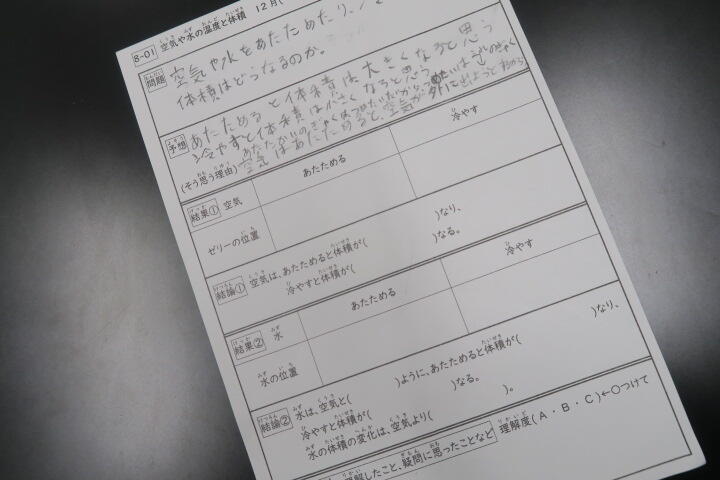 8-01 空気や水の温度と体積 12月(
問題 空気や水をあたためたり、
体積はどうなるのか。
予想 あたためると体積は大きくなると思う
冷やすと体積は小さくなると思う
(そう思う理由)
空気はあたためると、空気が
結果① 空気 あたためる 冷やす
ゼリーの位置
結論① 空気は、あたためると体積が( )なり、
冷やすと体積が( )なる。
結果② 水 あたためる 冷やす
水の位置
結論② 水は、空気と( )ように、あたためると体積が( )なり、
冷やすと体積が( )なる。
水の体積の変化は、空気より( )。
理解したこと、疑問に思ったことなど 理解度(A・B・C)←○つけて